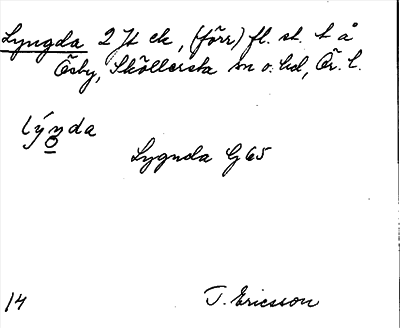 Lyngda 2 Jt ek, (förr) fl. st. t å
Ösby, Sköllersta sn o. hd, Ör. l.
lýnda
Lygnda G65
14 T. Ericsson